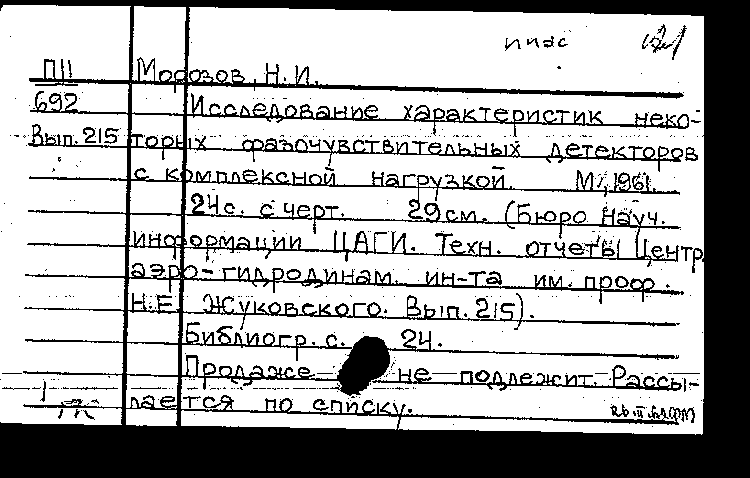 ППС
ПII Морозов, Н.И.
692 Исследование характеристик неко-
Вып. 215 торых фазочувствительных детекторов
с комплексной нагрузкой. М., 1961.
24с. с черт. 29см. (Бюро Науч.
информации ЦАГИ. Техн. отчеты Центр.
аэро-гидродинам. ин-та им. проф.
Н.Е. Жуковского. Вып. 215).
Библиогр. с. 24.
Продаже не подлежит. Рассы-
лается по списку.